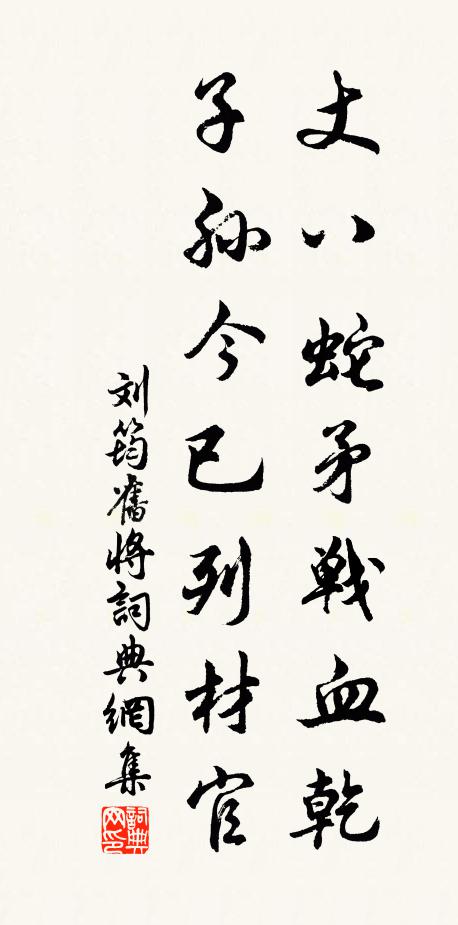 丈八蛇矛戰血乾
子孫今已列材官
刘筠舊将詞典網集
詞典网印